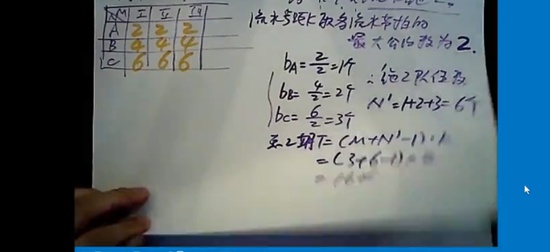 N M I II III
A 2 2 2
B 4 4 4
C 6 6 6
流水步距K取各流水节拍的
最大公约数为2.
bA=2/2=1个
bB=4/2=2个
bC=6/2=3个
∴总队伍数
N'=1+2+3=6个
总工期T=(M+N'-1)·K
=(3+6-1)